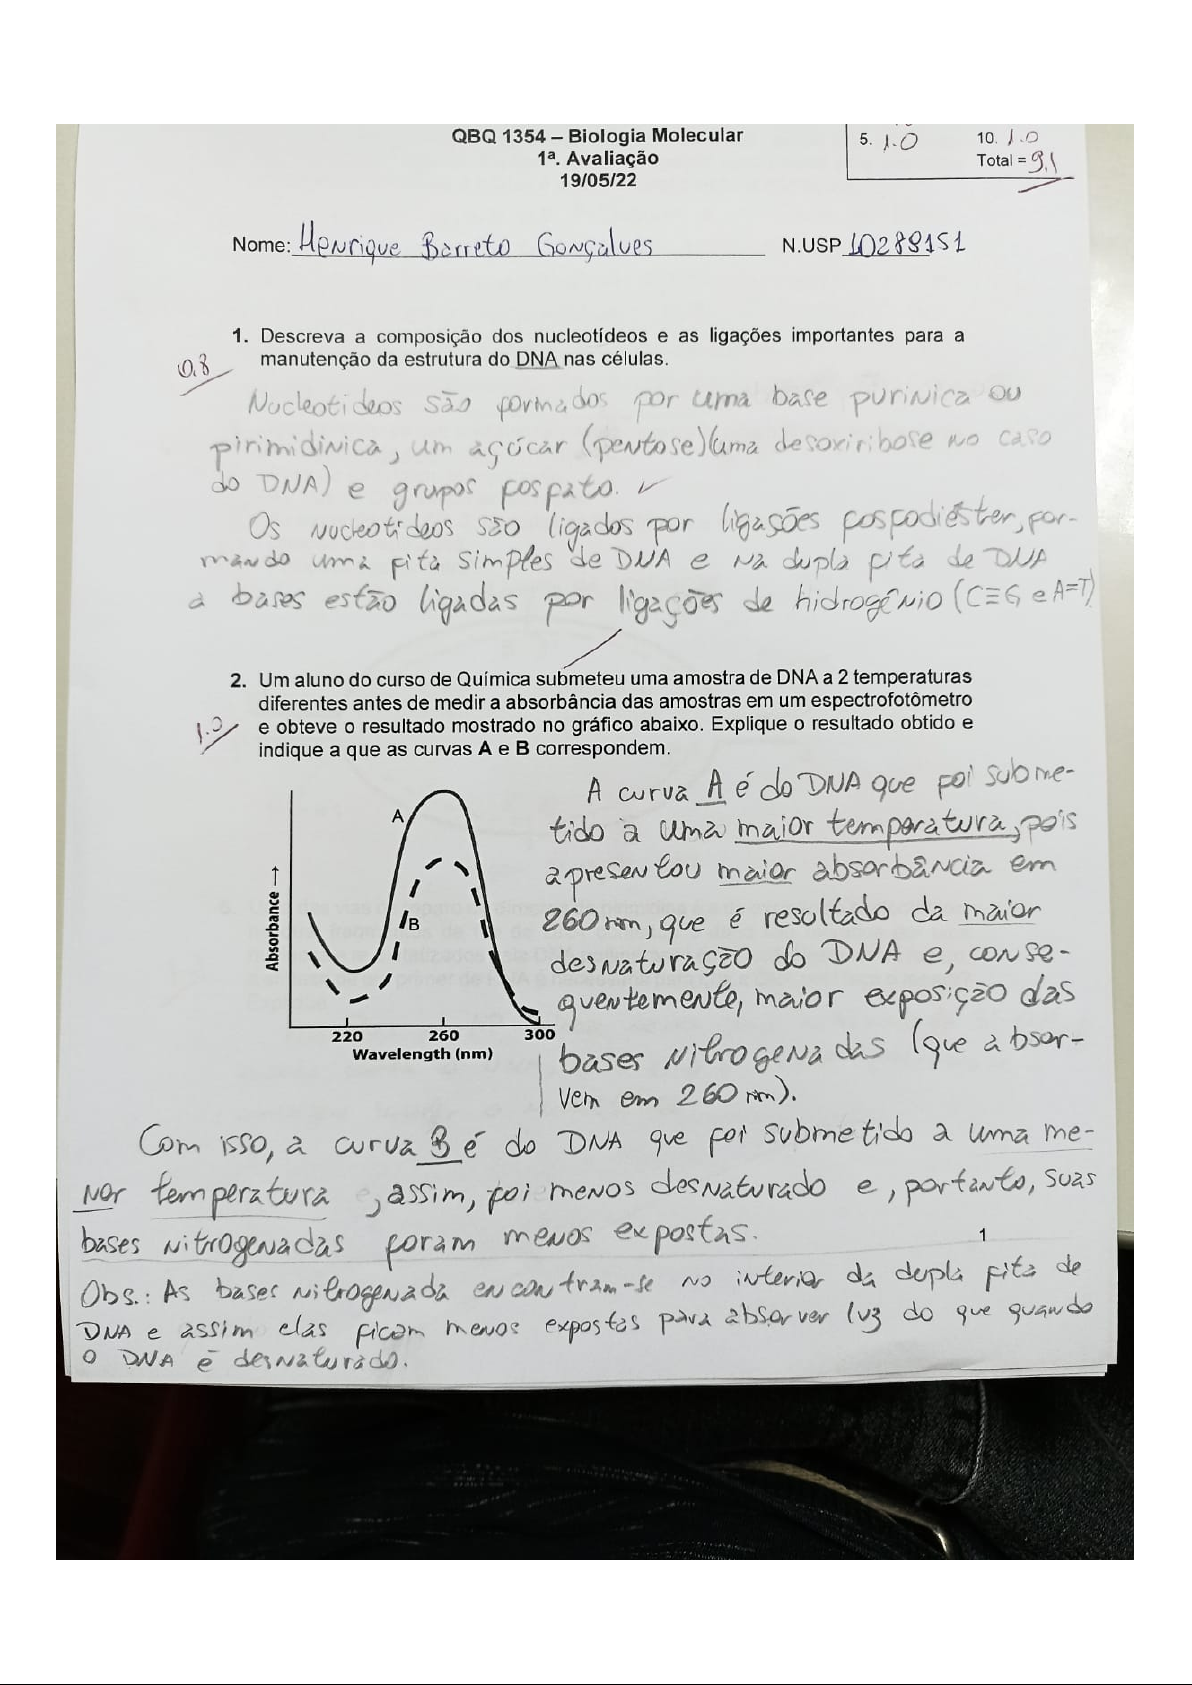 QBQ 1354 – Biologia Molecular
1ª. Avaliação
19/05/22
5. 1.0 10. 1.0
Total = 9.1
Nome: Henrique Barreto Gonçalves N.USP 10288151
1. Descreva a composição dos nucleotídeos e as ligações importantes para a
manutenção da estrutura do DNA nas células.
0.8
Nucleotídeos são formados por uma base purínica ou
pirimidínica, um açúcar (pentose)(uma desoxiribose no caso
do DNA) e grupos fosfato.
Os nucleotídeos são ligados por ligações fosfodiéster, for-
mando uma fita simples de DNA e na dupla fita de DNA
a bases estão ligadas por ligações de hidrogênio (C≡G e A=T)
2. Um aluno do curso de Química submeteu uma amostra de DNA a 2 temperaturas
diferentes antes de medir a absorbância das amostras em um espectrofotômetro
e obteve o resultado mostrado no gráfico abaixo. Explique o resultado obtido e
indique a que as curvas A e B correspondem.
1.0
A
B
Absorbance →
220 260 300
Wavelength (nm)
A curva A é do DNA que foi subme-
tido a uma maior temperatura, pois
apresentou maior absorbância em
260 nm, que é resultado da maior
desnaturação do DNA e, conse-
quentemente, maior exposição das
bases nitrogenadas (que absor-
vem em 260 nm).
Com isso, a curva B é do DNA que foi submetido a uma me-
nor temperatura e, assim, foi menos desnaturado e, portanto, suas
bases nitrogenadas foram menos expostas.
1
Obs.: As bases nitrogenada encontram-se no interior da dupla fita de
DNA e assim elas ficam menos expostas para absorver luz do que quando
o DNA é desnaturado.